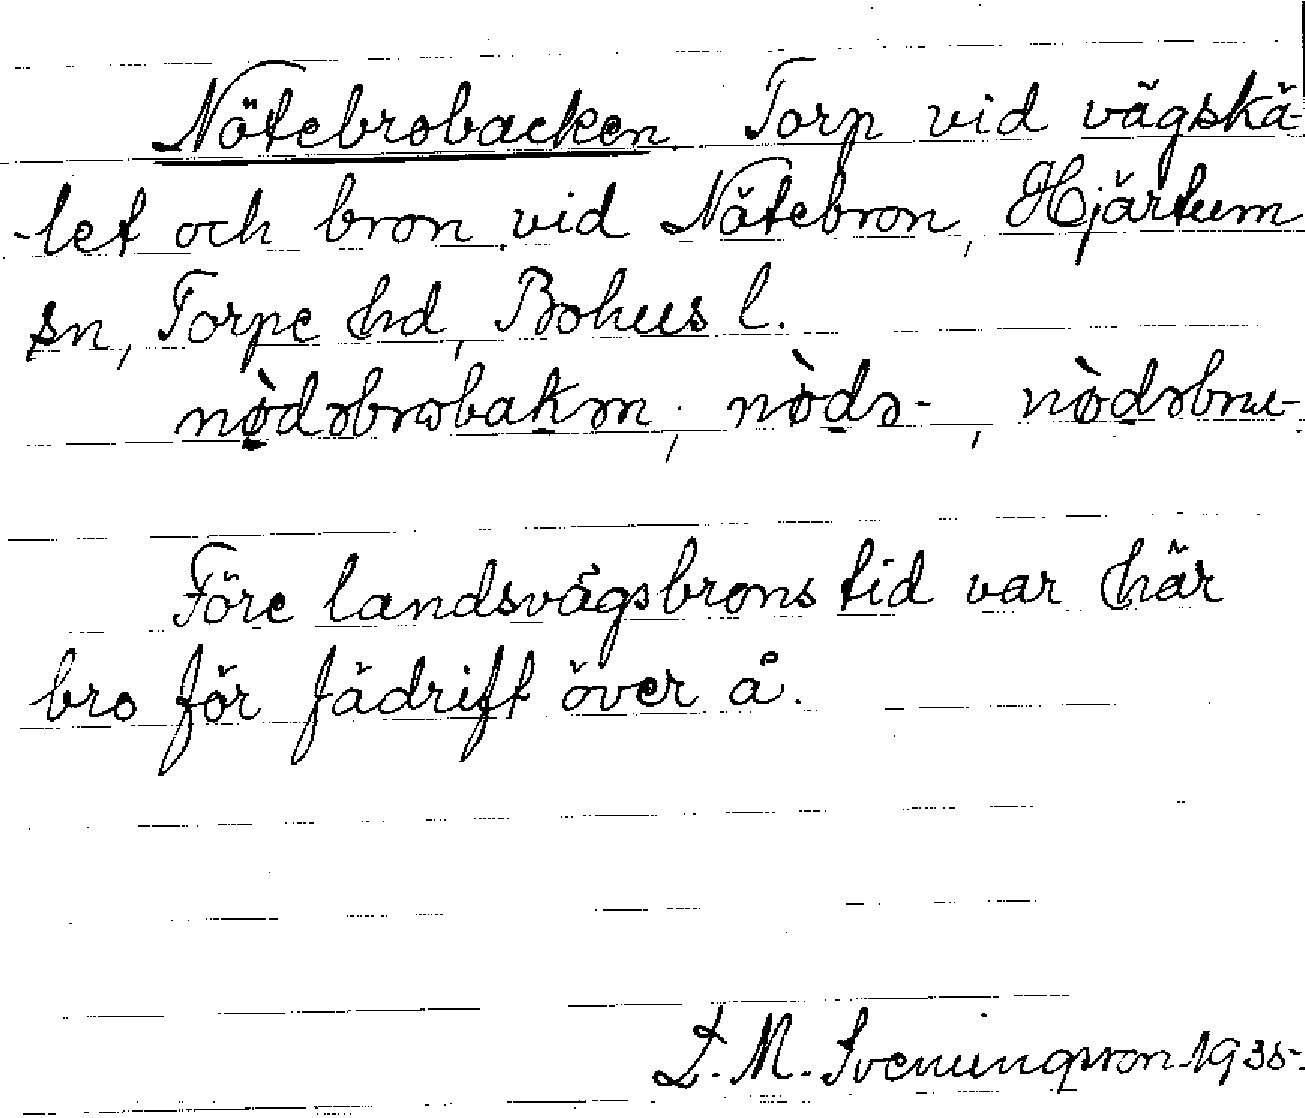 Nötebrobacken. Torp vid vägskä-
-let och bron vid Nötebron, Hjärtum
sn, Torpe hd, Bohus l.
nòdəbrobakən; nòdə-, nòdəbru-
Före landsvägsbrons tid var här
bro för fädrift över å.
L. M. Svenungsson 1935.